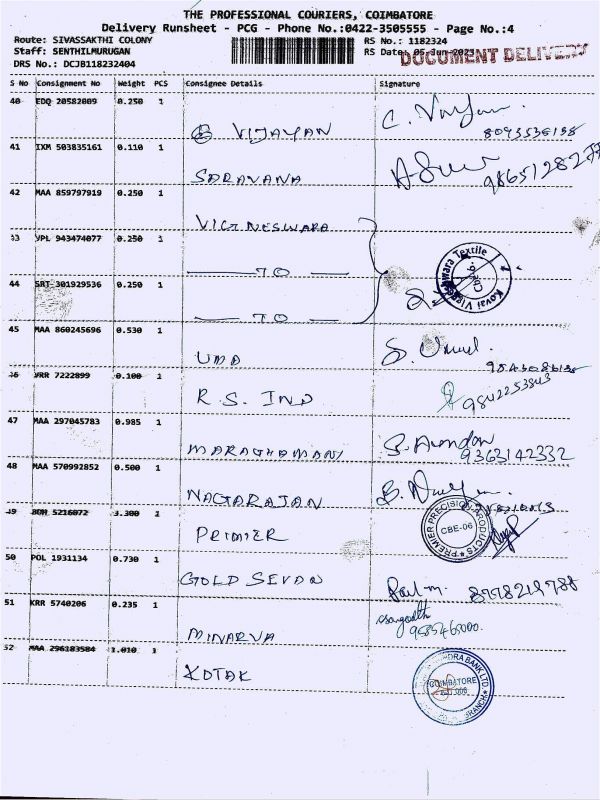 THE PROFESSIONAL COURIERS, COIMBATORE
Delivery Runsheet - PCG - Phone No.:0422-3505555 - Page No.:4
Route: SIVASSAKTHI COLONY
RS No.: 1182324
Staff: SENTHILMURUGAN
RS Date: 05-Jun-2023
DOCUMENT DELIVERY
DRS No.: DCJB118232404
S No Consignment No Weight PCS Consignee Details Signature
40 EDQ 20582009 0.250 1
VIJAYAN
C. 
41 IXM 503835161 0.110 1
SARAVANA
42 MAA 859797919 0.250 1
VIGNESWARA
43 VPL 943474077 0.250 1
TO
44 SRT 301929536 0.250 1
TO
Kovai Textile
45 MAA 860245696 0.530 1
UMA
46 VRR 7222899 0.100 1
R.S. IND
9842253843
47 MAA 297045783 0.985 1
MARAGHAMANI
9363142332
48 MAA 570992852 0.500 1
NAGARAJAN
49 BOM 5216072 3.300 1
PREMIER
PREMIER PRECISION PRODUCTS
CBE-06
50 POL 1931134 0.730 1
GOLD SEVAN
51 KRR 5740206 0.235 1
MINARVA
52 MAA 296183584 1.010 1
KOTAK
BANK LTD
COIMBATORE
BRANCH